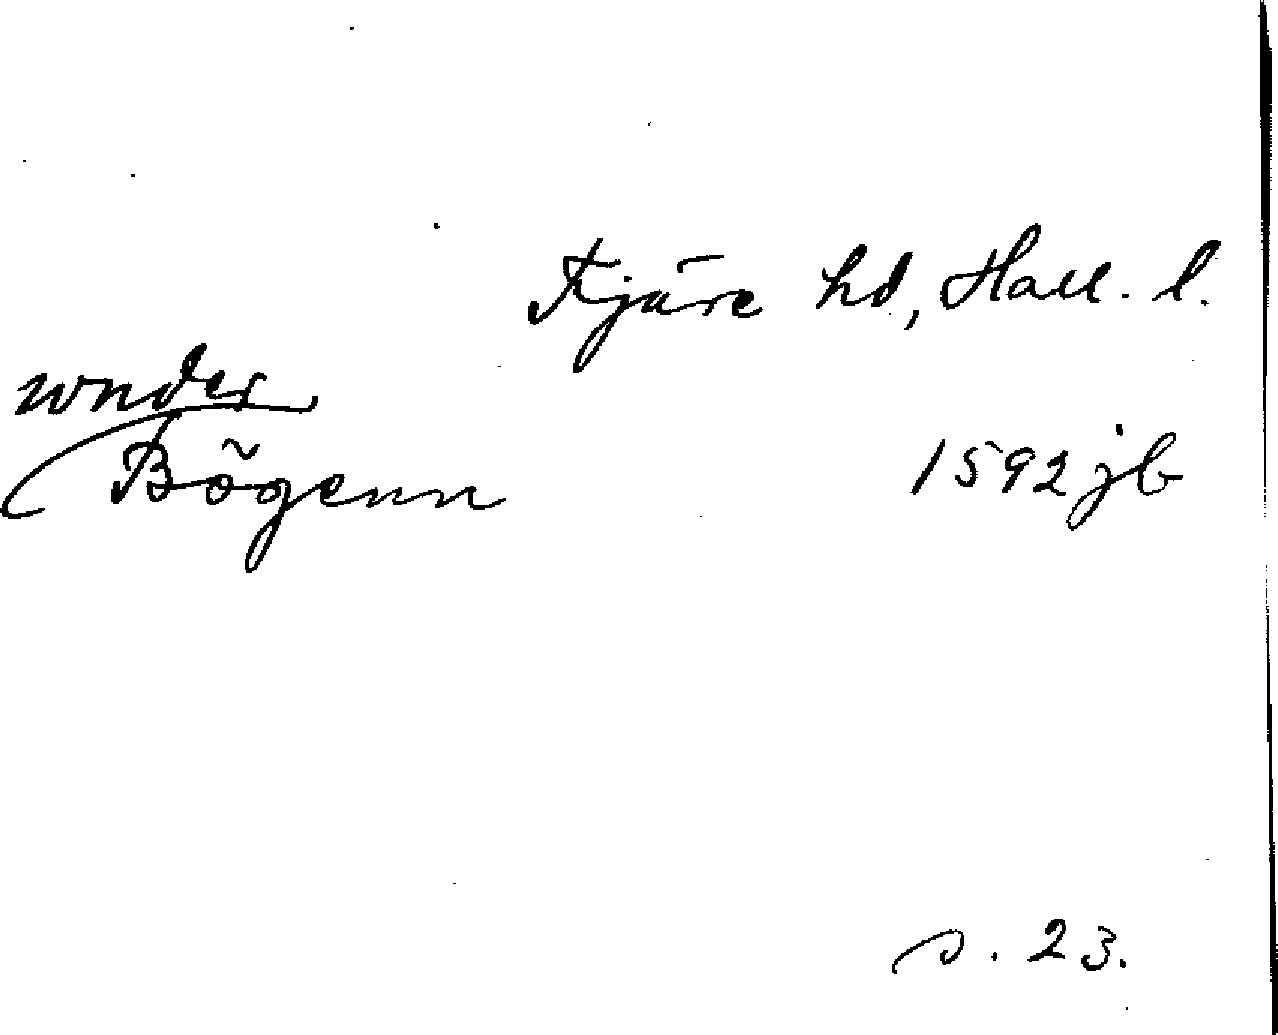 Fjäre hd, Hall. l.
wnder
Bögenn 1592 jb
s. 23.